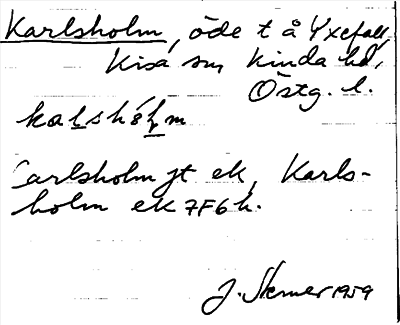 Karlsholm, öde t å Yxefall,
Kisa sn Kinda hd,
Östg. l.
Carlsholm jt ek, Karls-
holm ek 7F6h.
J. 1959